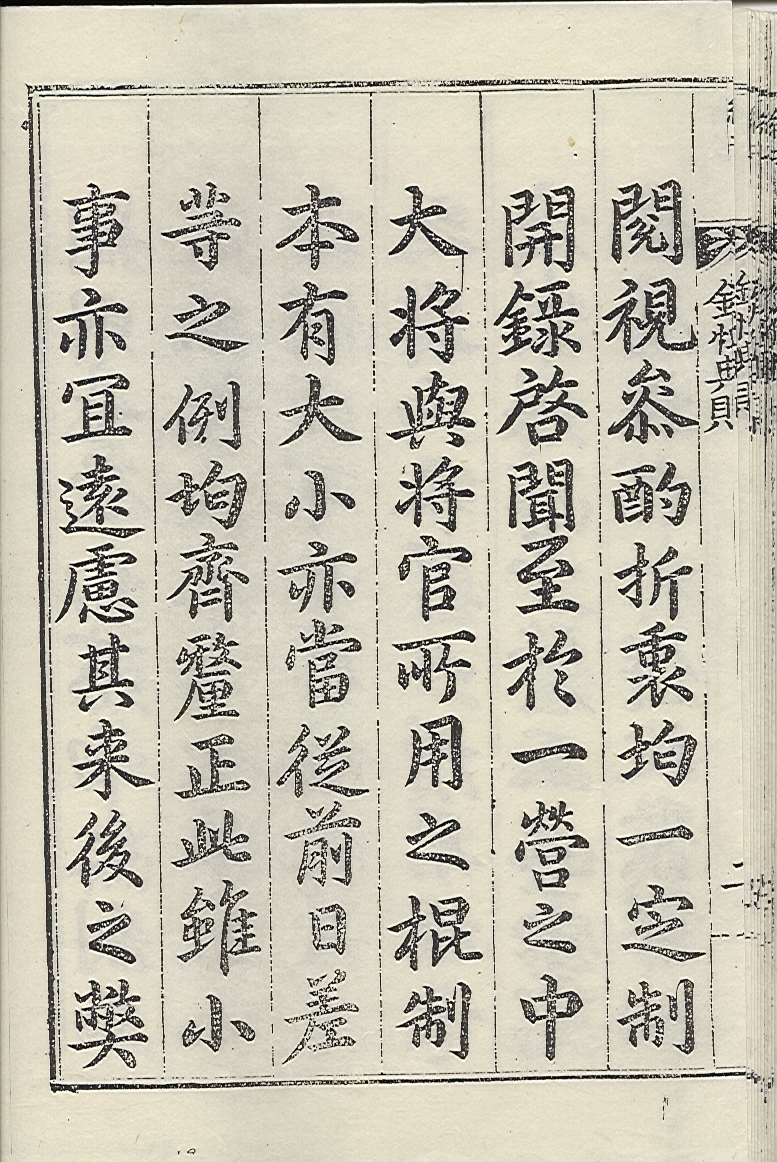 閱視叅酌折衷均一定制
開録啓聞至於一營之中
大将與将官所用之棍制
本有大小亦當従前日差
等之例均齊釐正此雖小
事亦冝遠慮其来後之弊
二